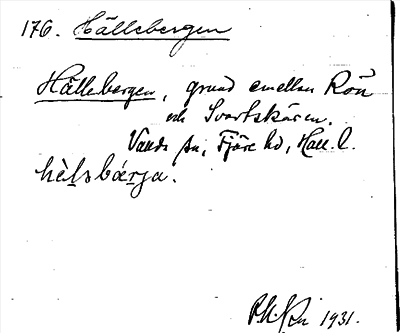 176. Hällebergen
Hällebergen, grund emellan Rön
och Svartskären.
Vanda sn, Fjäre hd, Hall. l.
hèlsbærja.
1931.